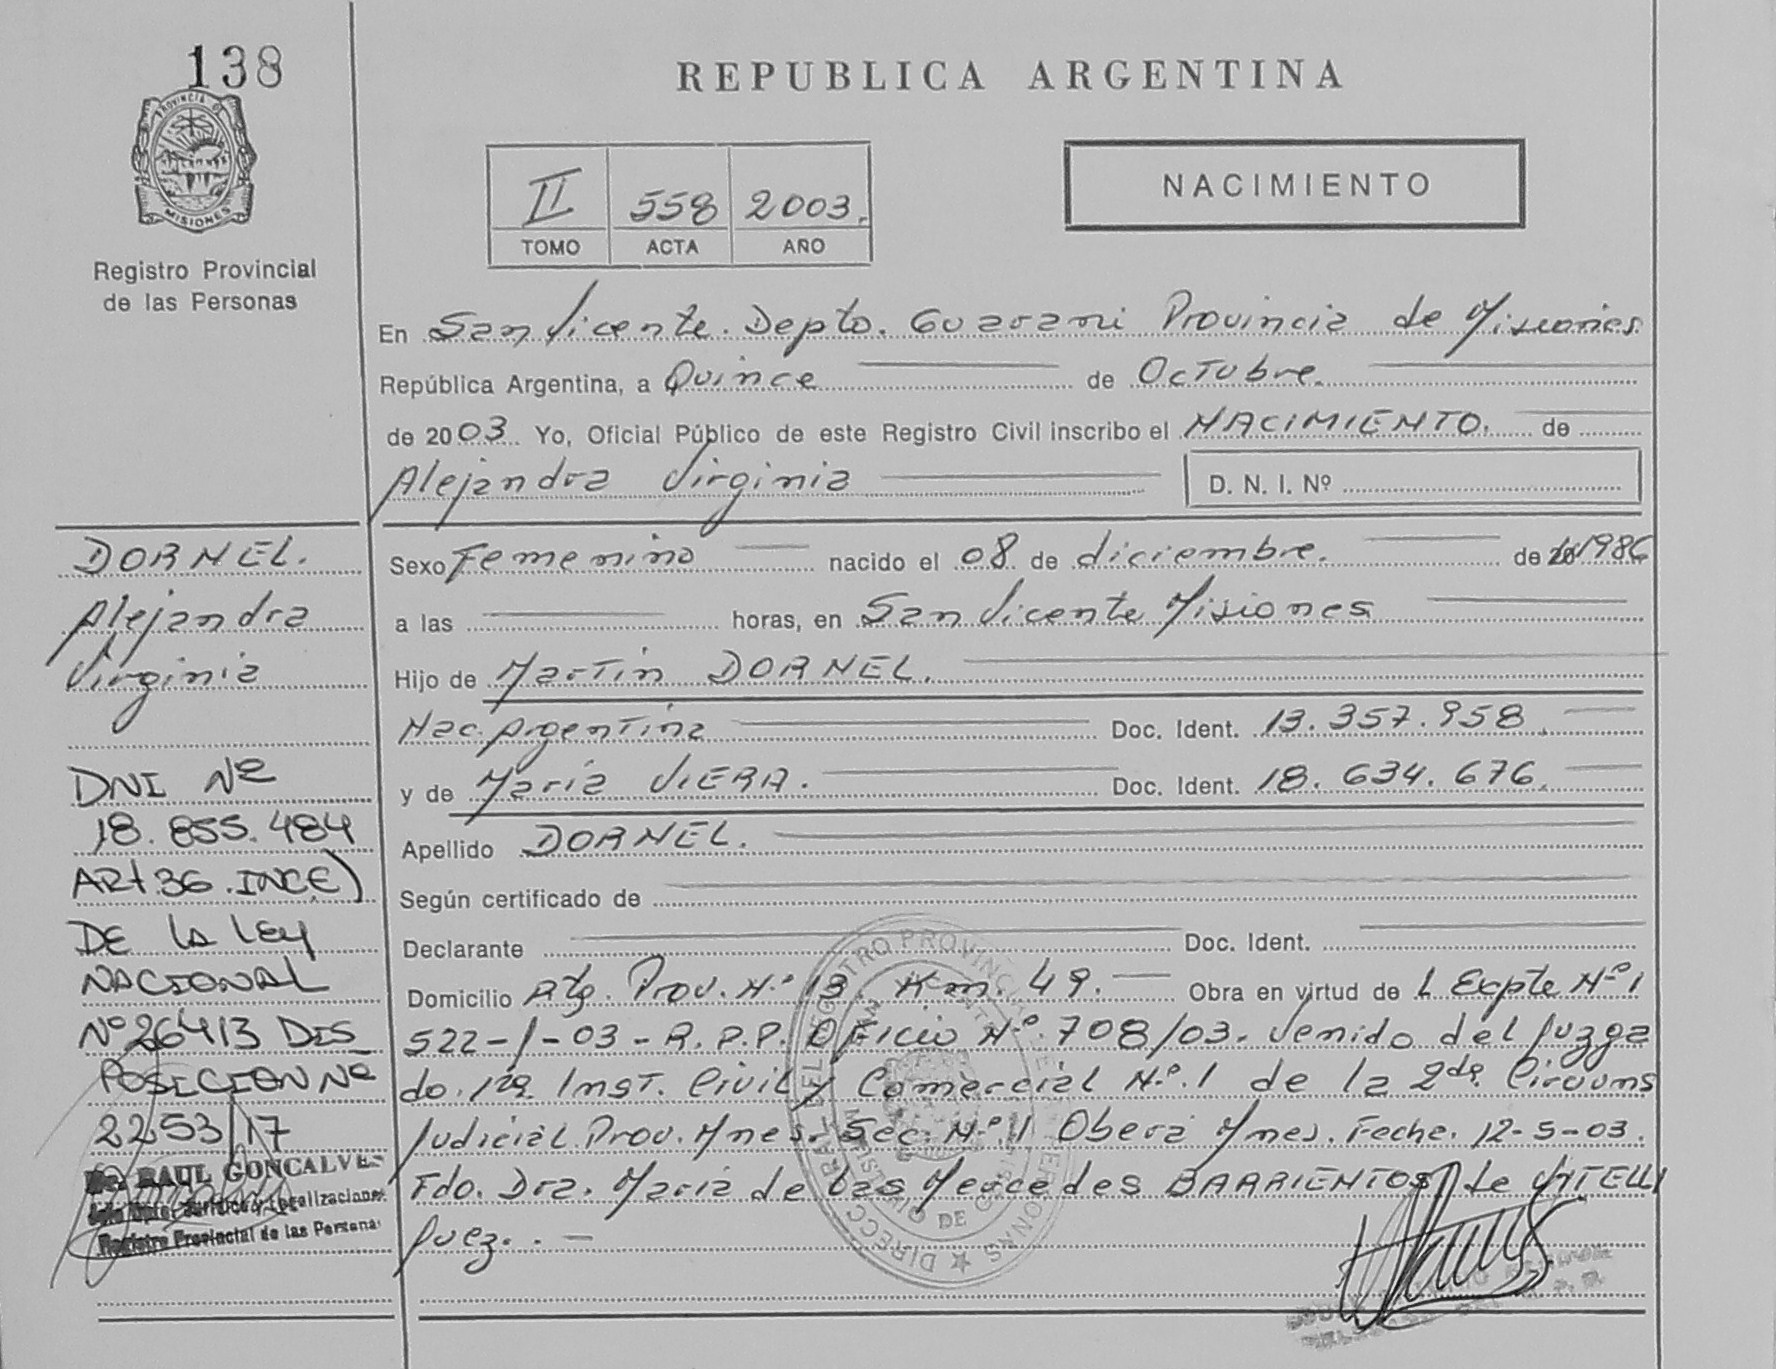 138
PROVINCIA DE
MISIONES
Registro Provincial
de las Personas
REPUBLICA ARGENTINA
II 558 2003.
TOMO ACTA AÑO
NACIMIENTO
En San Vicente. Depto. Guarani Provincia de Misiones
República Argentina, a Quince de Octubre.
de 2003 Yo, Oficial Público de este Registro Civil inscribo el NACIMIENTO. de
Alejandra Virginia D. N. I. Nº
Sexo Femenino nacido el 08 de diciembre. de 1986
a las horas, en San Vicente Misiones
Hijo de Martin DORNEL.
Nac. Argentina Doc. Ident. 13.357.958
y de Maria VIERA. Doc. Ident. 18.634.676.
Apellido DORNEL.
Según certificado de
Declarante Doc. Ident.
Domicilio Rta. Prov. N.º 13. Km. 49. Obra en virtud de L Expte Nº 1
522-1-03-R.P.P. Oficio Nº. 708/03. Venido del Juzga
do. 1ra Inst. Civil y Comercial N.º.1 de la 2da Circuns
Judicial Prov. Mnes. Sec. N.º.1 Obera Mnes. Fecha. 12-5-03.
Fdo. Dra. Maria de las Mercedes BARRIENTOS de VITELLI
Juez. . -
DORNEL.
Alejandra
Virginia
DNI Nº
18.855.484
ARt 36. INC E)
DE la ley
NACIONAL
Nº 26413 DIS_
POSICION Nº
2253/17
Dr. RAUL GONCALVES
Jefe Dpto. Jurídico y Legalizaciones
Registro Provincial de las Personas